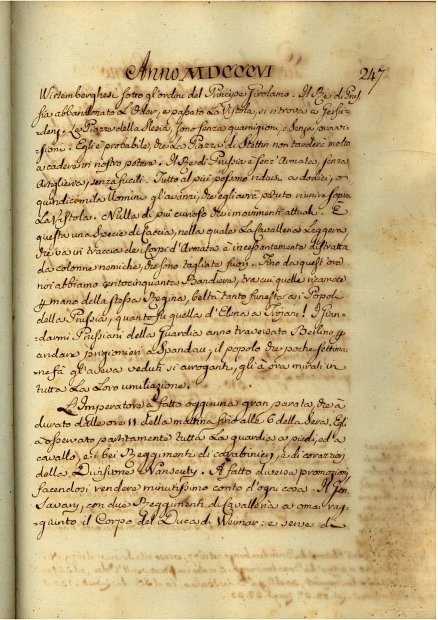 Anno MDCCCVI 247
Wirtemberghesi sotto gl'ordini del Principe Girolamo. Il Re di Prus
sia abbandonato l'Oder, e passato la Vistola, si ritrova a
Le Piazze della Slesia, sono senza guarnigioni, e senza provvi
sioni: Egli è probabile, che la Piazza di Stettin non tarderà molto
a cadere in nostro potere. Il Re di Prussia è senz'Armata, senza
Artiglieria, senza fucili. Tutto al più possono ridursi a dodici, o
quindicimila Uomini gl'avanzi, che egli avrà potuto riunire sopra
la Vistola. Nulla di più curioso che i movimenti attuali. È
questa una Specie di Caccia, nella quale la Cavalleria Leggera
che va in traccia dei Corpi d'Armata è incessantemente distratta
da colonne nemiche, che sono tagliate fuori. Fino da quest'ore
noi abbiamo centocinquanta Bandiere, tra cui quelle ricamate
p mano della stessa Regina, beltà tanto funesta ai Popoli
della Prussia, quanto fu quella d'Elena a Trojani! I Gian-
darmi Prussiani della Guardia anno traversato Berlino p
andare prigionieri a Spandau, il popolo che poche settima-
ne fà gl'aveva veduti sì arroganti, gli à ora mirati in
tutta la loro umiliazione.
L'Imperatore à fatto oggi una gran parata, che à
durato dalle ore 11 della mattina fino alle 6 della sera. Egli
à osservato partitamente tutta la guardia a piedi, ed a
cavallo, e i bei Reggimenti di carabinieri, e di corazzieri
della Divisione Nansouty. À fatto diverse promozioni
facendosi rendere minutissimo conto d'ogni cosa. Il Gen
Savary, con due Reggimenti di Cavalleria à omai rag-
giunto il Corpo del Duca di Weimar: e serve di